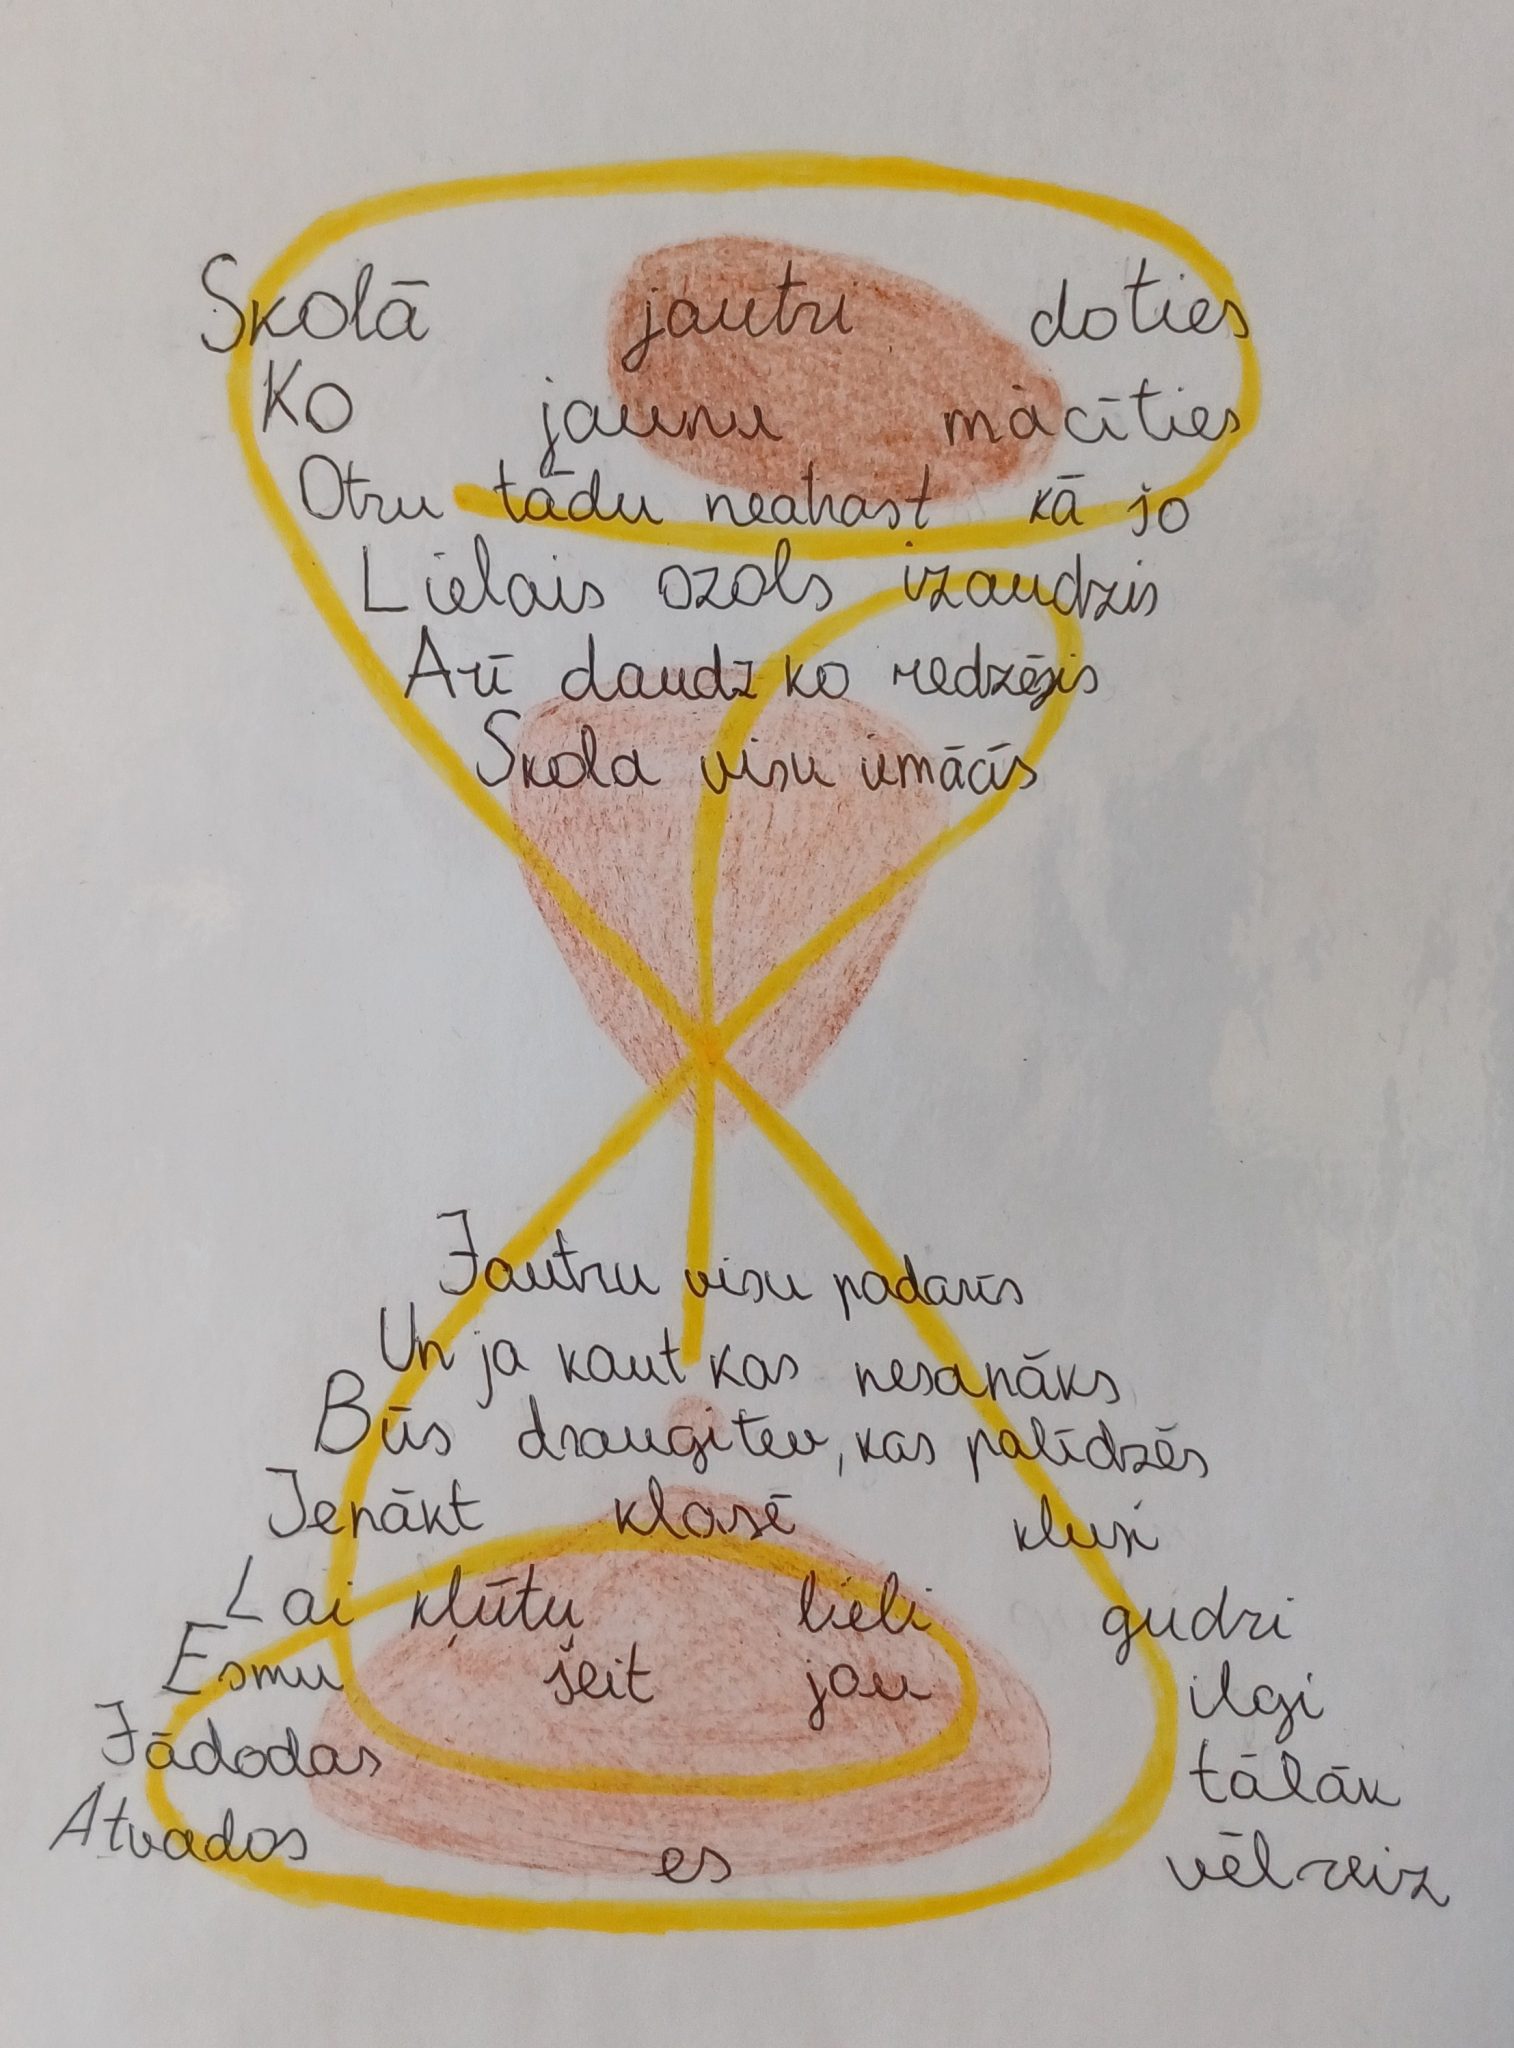 Skolā jautri doties
Ko jaunu mācīties
Otru tādu neatrast kā jo
Lielais ozols izaudzis
Arī daudz ko redzējis
Skola visu iemācīs
Jautru visu padarīs
Un ja kaut kas nesanāks
Būs draugi tev, kas palīdzēs
Ienākt klasē klusi
Lai kļūtu lieli gudri
Esmu šeit jau ilgi
Jādodas tālāk
Atvados es vēlreiz